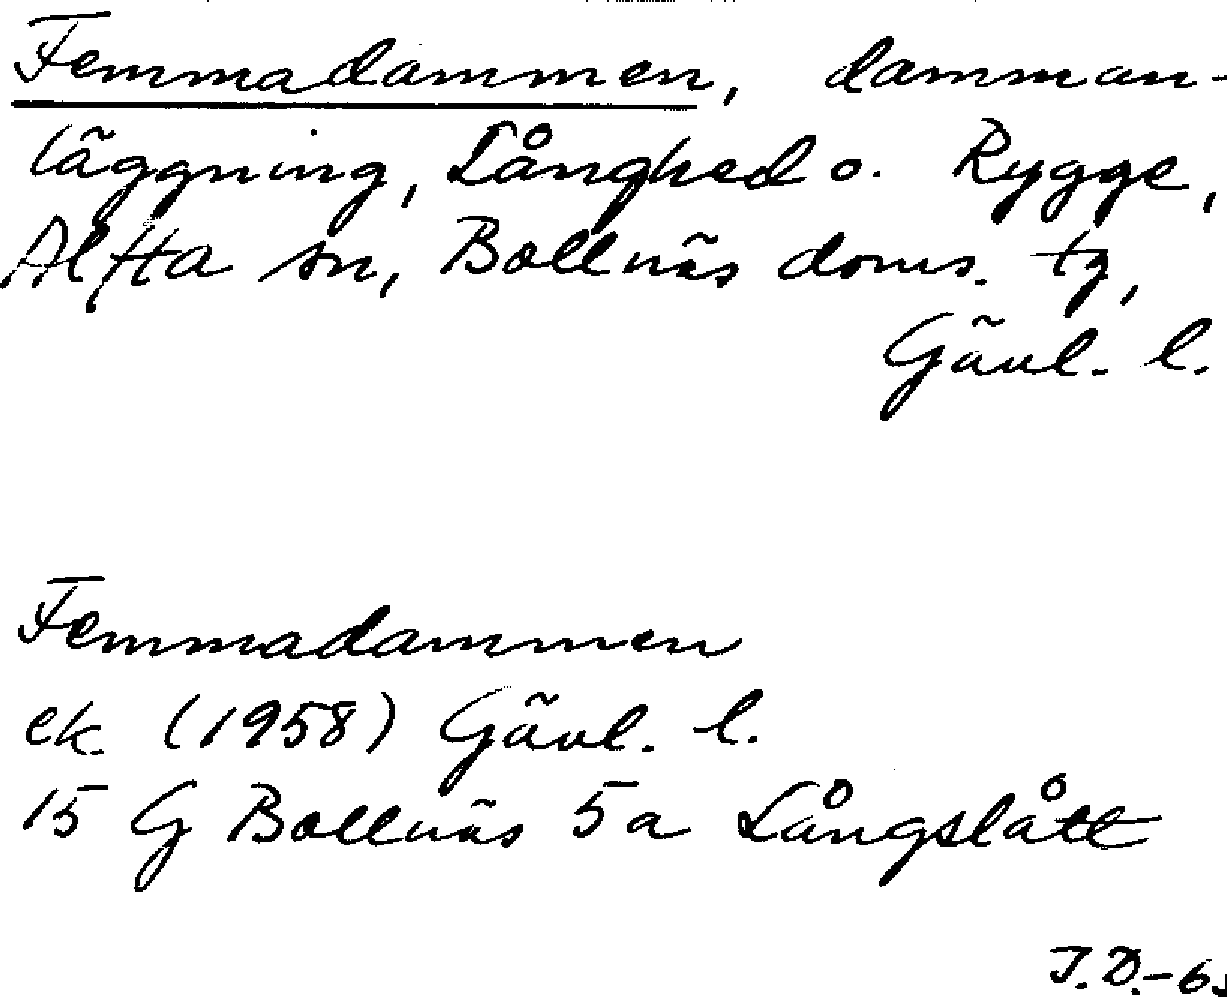 Femmadammen, damman-
läggning, Långhed o. Rygge,
Alfta sn, Bollnäs doms. tg,
Gävl. l.
Femmadammen
ek. (1958) Gävl. l.
15 G Bollnäs 5a Långslått
J.D.-65